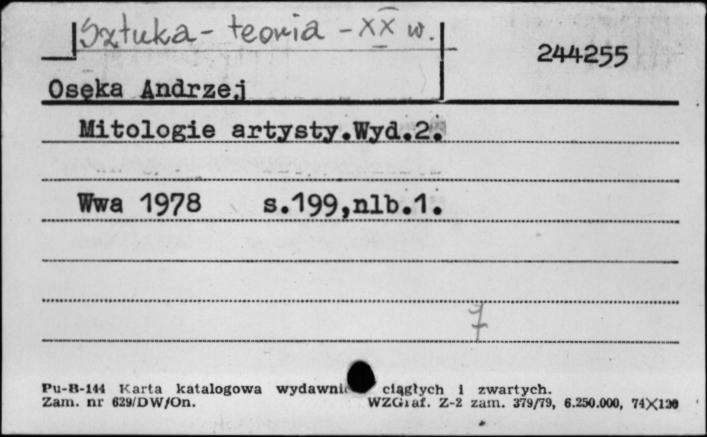 Sztuka - teoria - XX w.
244255
Osęka Andrzej
Mitologie artysty.Wyd.2.
Wwa 1978 s.199,nlb.1.
7
Pu-B-144 Karta katalogowa ciągłych i zwartych.
Zam. nr 629/DW/On. WZGraf. Z-2 zam. 379/79, 6.250.000, 74X120